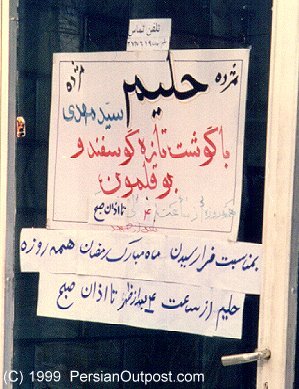 تلفن تماس
مژده مژده
حلیم
سید مهدی
با گوشت تازه گوسفند و
بوقلمون
۴ تا اذان صبح
بمناسبت فرا رسیدن ماه مبارک رمضان همه روزه
حلیم از ساعت ۴ بعد از ظهر تا اذان صبح
(C) 1999 PersianOutpost.com